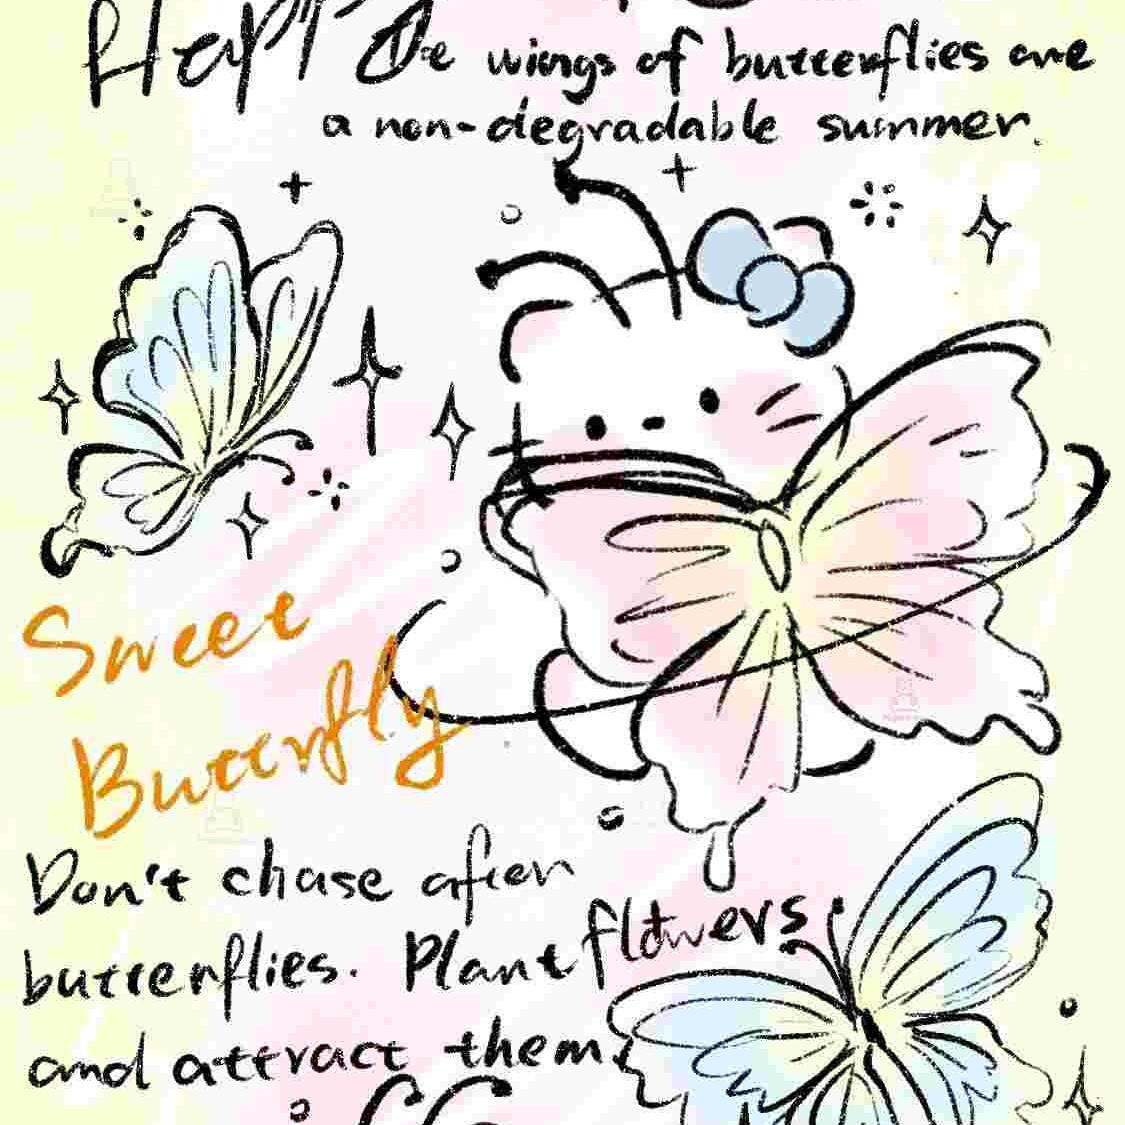 The wings of butterflies are
a non-degradable summer.
Sweet
Butterfly
Don't chase after
butterflies. Plant flowers
and attract them.